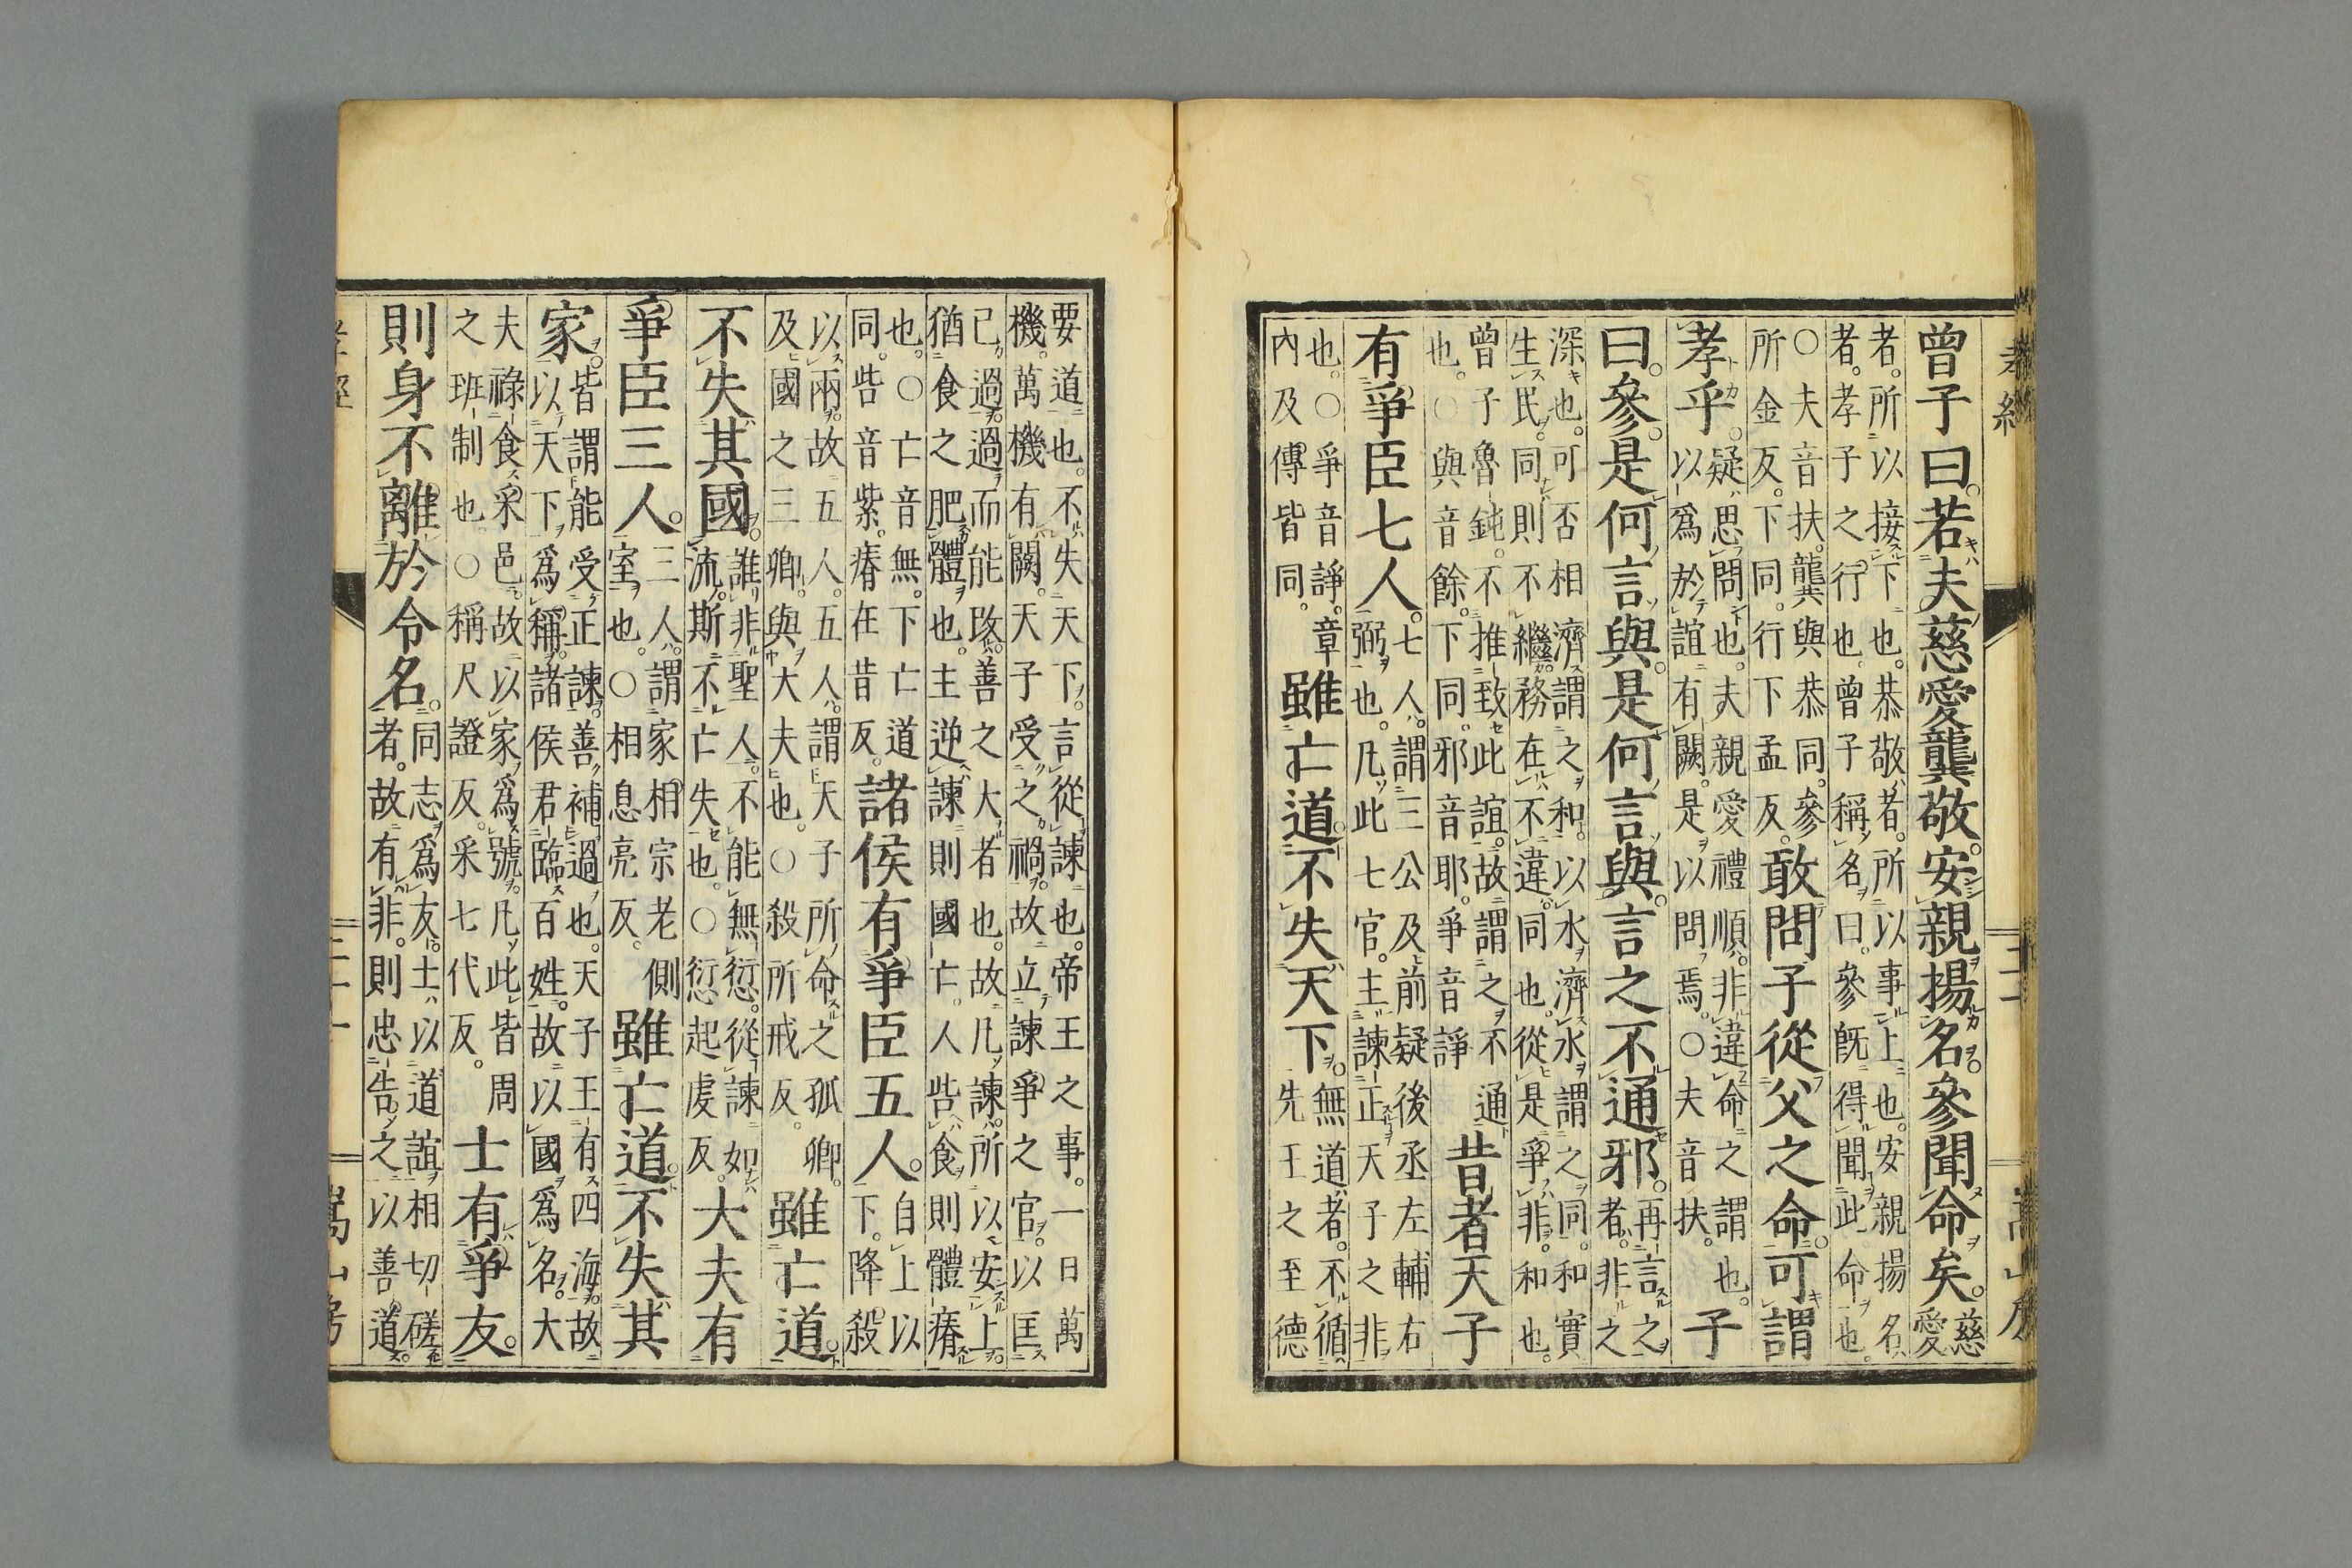 孝經
曾子曰。若夫慈愛龔敬。安親揚名。參聞命矣。慈愛
者。所以接下也。恭敬者。所以事上也。安親揚名
者。孝子之行也。曾子稱名曰。參既得聞此命也。
〇夫音扶。龔與恭同。參
所金反。下同。行下孟反。
敢問子從父之命。可謂
孝乎。
疑思問也。夫親愛禮順。非違命之謂也。
以爲於誼有闕。是以問焉。〇夫音扶。
子
曰。參。是何言與。是何言與。言之不通邪。
再言之
者。非之
深也。可否相濟。謂之和。以水濟水。謂之同。和實
生民。同則不繼。務在不違。同也。從是爭非。和也。
曾子魯鈍。不推致此誼。故謂之不通
也。〇與音餘。下同。邪音耶。爭音諍
昔者天子
有爭臣七人。
七人。謂三公及前疑後丞左輔右
弼也。凡此七官。主諫正天子之非
也。〇爭音諍。章
內及傳皆同。
雖亡道。不失天下。
無道者。不循
先王之至德
嵩山房
要道也。不失天下。言從諫也。帝王之事。一日萬
機。萬機有闕。天子受之禍。故立諫爭之官。以匡
已過。過而能改。善之大者也。故凡諫。所以安上。
猶食之肥體也。主逆諫則國亡。人呰食則體瘠
也。〇亡音無。下亡道
同。呰音紫。瘠在昔反。
諸侯有爭臣五人。
自上以
下。降殺
以兩。故五人。五人。謂天子所命之孤卿。
及國之三卿。與大夫也。〇殺所戒反。
雖亡道。
不失其國。
誰非聖人。不能無愆。從諫如
流。斯不亡失也。〇愆起虔反。
大夫有
爭臣三人。
三人。謂家相宗老側
室也。〇相息亮反。
雖亡道。不失其
家。
皆謂能受正諫。善補過也。天子王有四海。故
以天下爲稱。諸侯君臨百姓。故以國爲名。大
夫祿食采邑。故以家爲號。凡此皆周
之班制也。〇稱尺證反。采七代反。
士有爭友。
則身不離於令名。
同志爲友。士以道誼相切磋
者。故有非。則忠告之以善道。